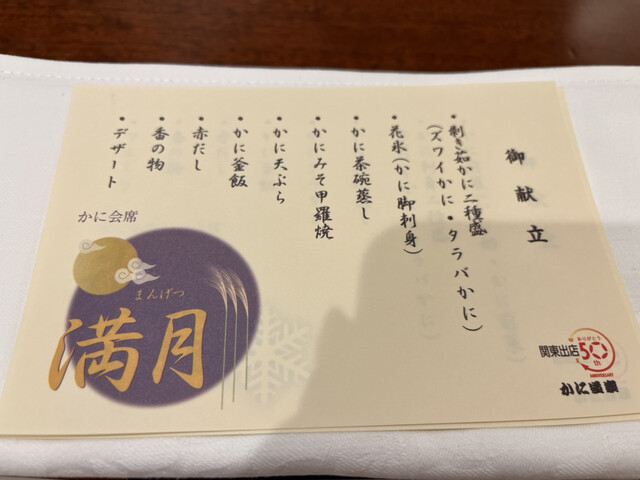 御献立
・剝き茹かに二種盛
(ズワイかに・タラバかに)
・花氷(かに脚刺身)
・かに茶碗蒸し
・かにみそ甲羅焼
・かに天ぷら
・かに釜飯
・赤だし
・香の物
・デザート
かに会席
まんげつ
満月
関東出店
ありがとう
50th
ANNIVERSARY
かに道楽